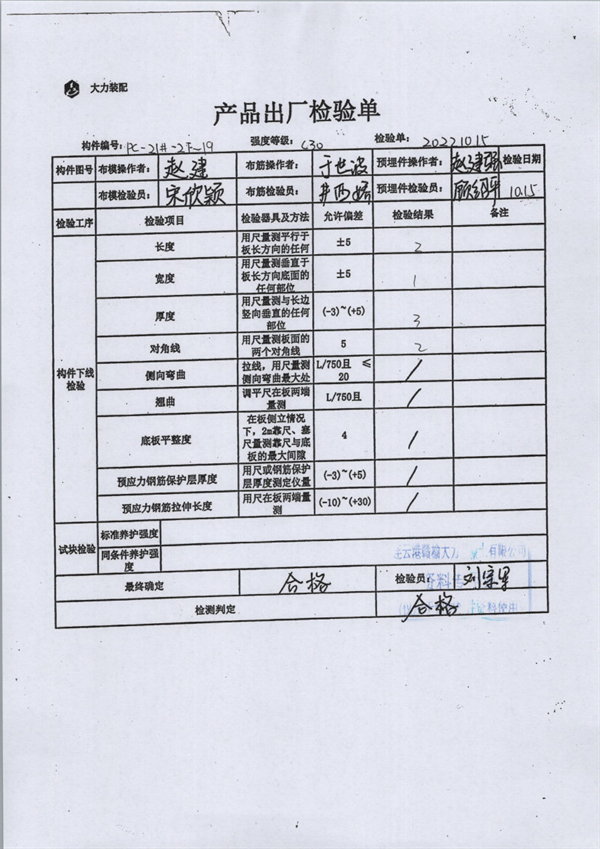 大力装配
产品出厂检验单
构件编号: PC-21#-2F-19 强度等级: C30 检验单: 20221015
构件图号 布模操作者: 赵建 布筋操作者: 于世波 预埋件操作者: 赵建强 检验日期
布模检验员: 宋欣颖 布筋检验员: 预埋件检验员: 10.15
检验工序 检验项目 检验器具及方法 允许偏差 检验结果 备注
构件下线检验
长度 用尺量测平行于板长方向的任何 ±5 2
宽度 用尺量测垂直于板长方向底面的任何部位 ±5 1
厚度 用尺量测与长边竖向垂直的任何部位 (-3)~(+5) 3
对角线 用尺量测板面的两个对角线 5 2
侧向弯曲 拉线,用尺量测侧向弯曲最大处 L/750且 ≤20 /
翘曲 调平尺在板两端量测 L/750且 /
底板平整度 在板侧立情况下,2m靠尺、塞尺量测靠尺与底板的最大间隙 4 /
预应力钢筋保护层厚度 用尺或钢筋保护层厚度测定仪量 (-3)~(+5) /
预应力钢筋拉伸长度 用尺在板两端量测 (-10)~(+30) /
试块检验 标准养护强度
同条件养护强度
最终确定 合格 检验员:
检测判定 合格